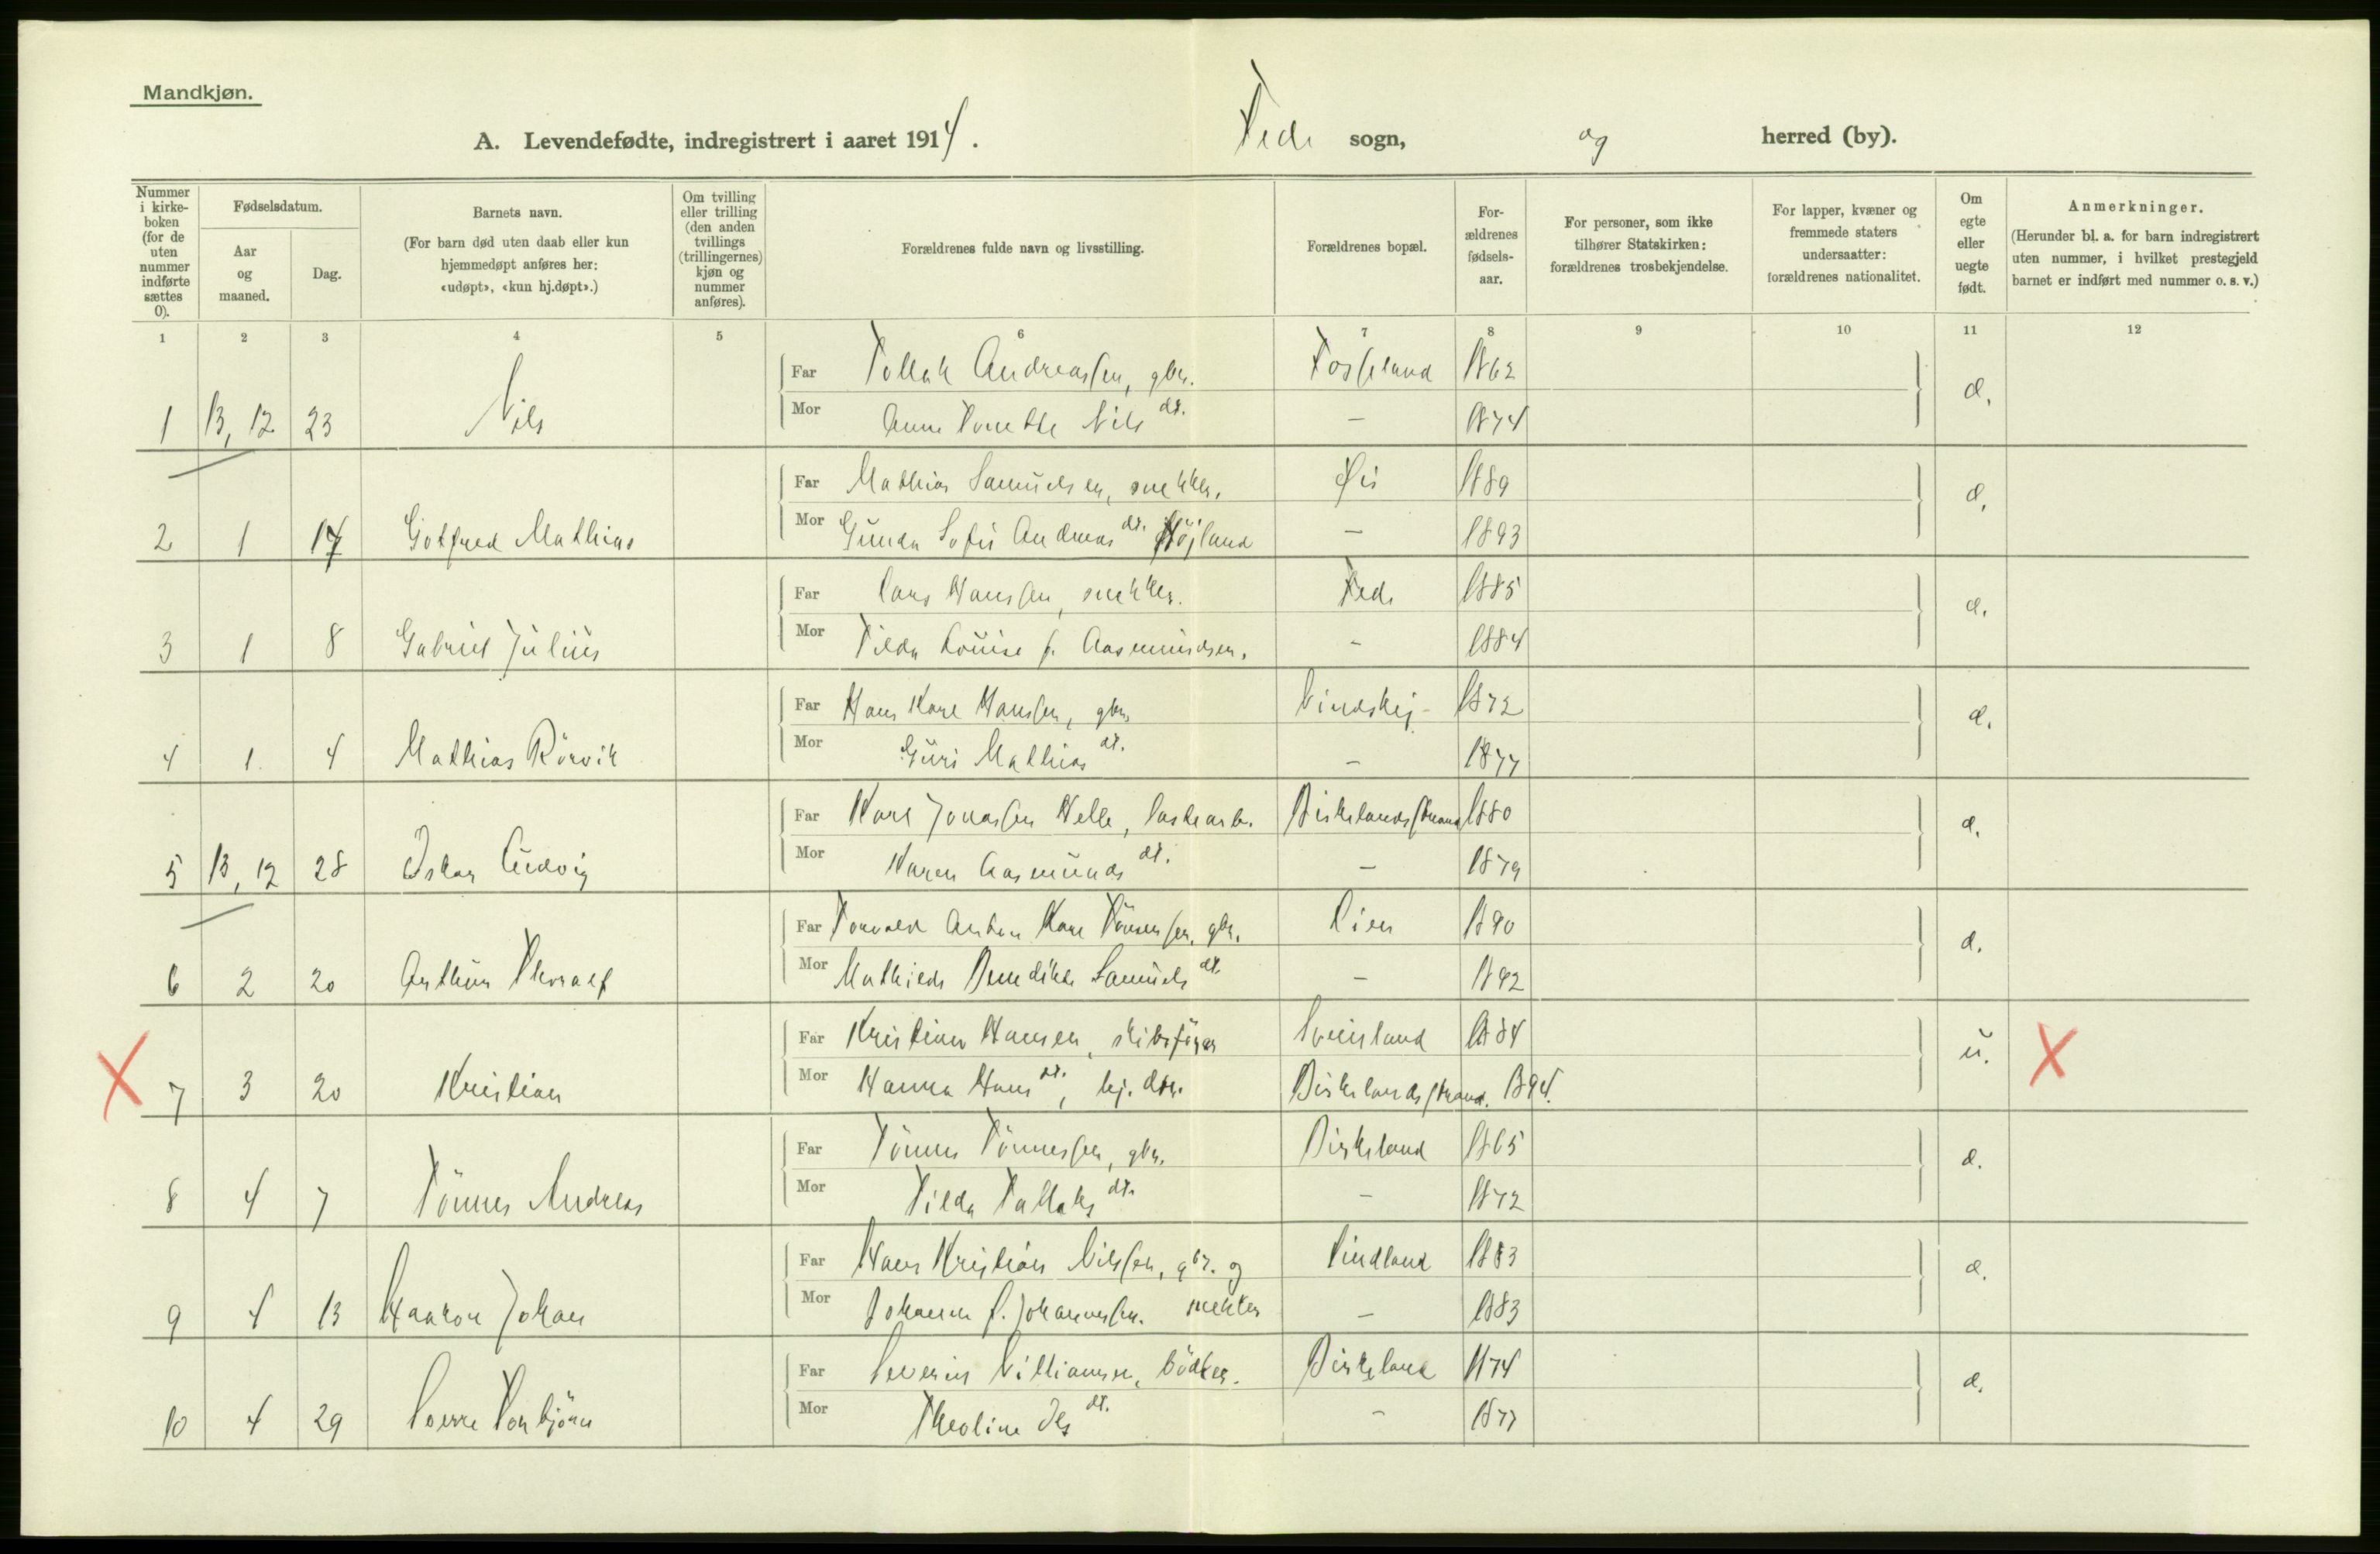 Mandkjøn.
A. Levendefødte, indregistrert i aaret 1914.
Fede sogn, og herred (by).
Nummer i kirkeboken (for de uten nummer indførte sættes 0).
Fødselsdatum.
Aar og maaned.
Dag.
Barnets navn.
(For barn død uten daab eller kun hjemmedøpt anføres her: «udøpt», «kun hj.døpt».)
Om tvilling eller trilling (den anden tvillings (trillingernes) kjøn og nummer anføres).
Forældrenes fulde navn og livsstilling.
Forældrenes bopæl.
Forældrenes fødselsaar.
For personer, som ikke tilhører Statskirken: forældrenes trosbekjendelse.
For lapper, kvæner og fremmede staters undersaatter: forældrenes nationalitet.
Om egte eller uegte født.
Anmerkninger.
(Herunder bl. a. for barn indregistrert uten nummer, i hvilket prestegjeld barnet er indført med nummer o. s. v.)
1 2 3 4 5 6 7 8 9 10 11 12
Far Tollak Andreassen, gbr. Fosseland 1862
1 13, 12 23 Nils e.
Mor Anne Tonette Nils dt. — 1874
Far Mathias Samuelsen, snekker. Øie 1889
2 1 17 Gotfred Mathias e.
Mor Gunda Sofie Andreas dt. Höjland — 1893
Far Lars Hanssen, snekker. Fede 1885
3 1 8 Gabriel Julius e.
Mor Tilda Louise f. Aasmundsen. — 1884
Far Hans Karl Hanssen, gbr. 1872
4 1 4 Mathias Rörvik e.
Mor Guri Mathias dt. — 1877
Far Karl Jonassen Helle, Birkelandsstrand 1880
5 13, 12 28 Oskar Ludvig e.
Mor Karen Aasmunds dt. — 1879
Far Torvald Anton Karl Tönnessen, gbr. Lien 1890
6 2 20 Arthur Thoralf e.
Mor Mathilde Benedikte Samuels dt. — 1892
Far Kristian Hansen, skibsförer Sveiseland 1884
7 3 20 Kristian u.
Mor Hanna Hans dt., hj. dtr. Birkelandsstrand. 1894.
Far Tönnes Tönnessen, gbr. Birkeland 1865
8 4 7 Tönnes Andreas e.
Mor Tilda Tallaks dt. — 1872
Far Hans Kristian Nilssen, gbr. og Lindland 1883
9 4 13 Haakon Johan e.
Mor Johanne f. Johannessen. snekker — 1883
Far Severin Villiamsen, bödker. Birkeland 1874
10 4 29 Sverre Torbjörn e.
Mor Theoline Ols dt. — 1877